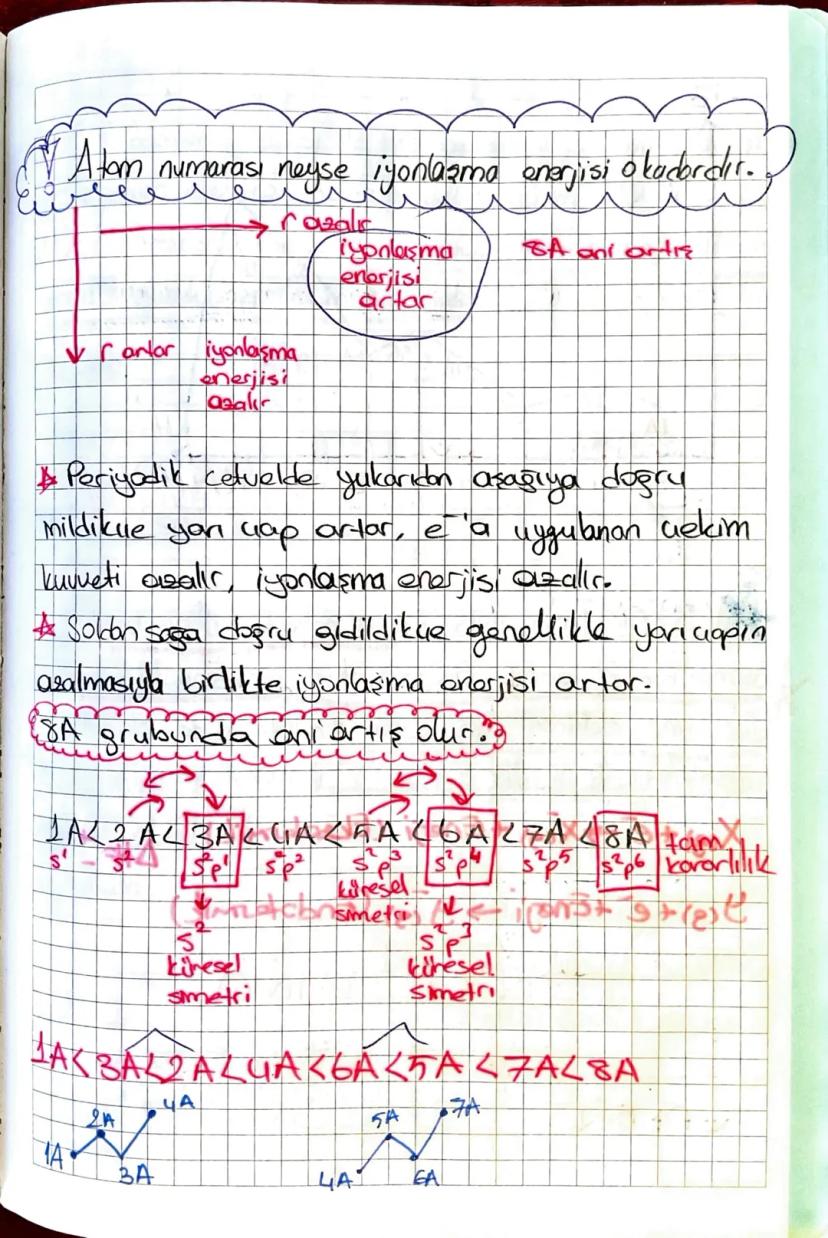 ! Atom numarası neyse iyonlaşma enerjisi o kadardır.
r azalır
iyonlaşma
enerjisi
artar
8A ani artış
r artar iyonlaşma
enerjisi
azalır
☆ Periyodik cetvelde yukarıdan aşağıya doğru
inildikçe yarı çap artar, e⁻'a uygulanan çekim
kuvveti azalır, iyonlaşma enerjisi azalır.
☆ Soldan sağa doğru gidildikçe genellikle yarıçapın
azalmasıyla birlikte iyonlaşma enerjisi artar.
8A grubunda ani artış olur.
1A < 2A < 3A < 4A < 5A < 6A < 7A < 8A tam
s¹ s² s²p¹ s²p² s²p³ s²p⁴ s²p⁵ s²p⁶ kararlılık
küresel
simetri
s² s²p³
küresel küresel
simetri simetri
1A < 3A < 2A < 4A < 6A < 5A < 7A < 8A
1A 2A 3A 4A
4A 5A 6A 7A